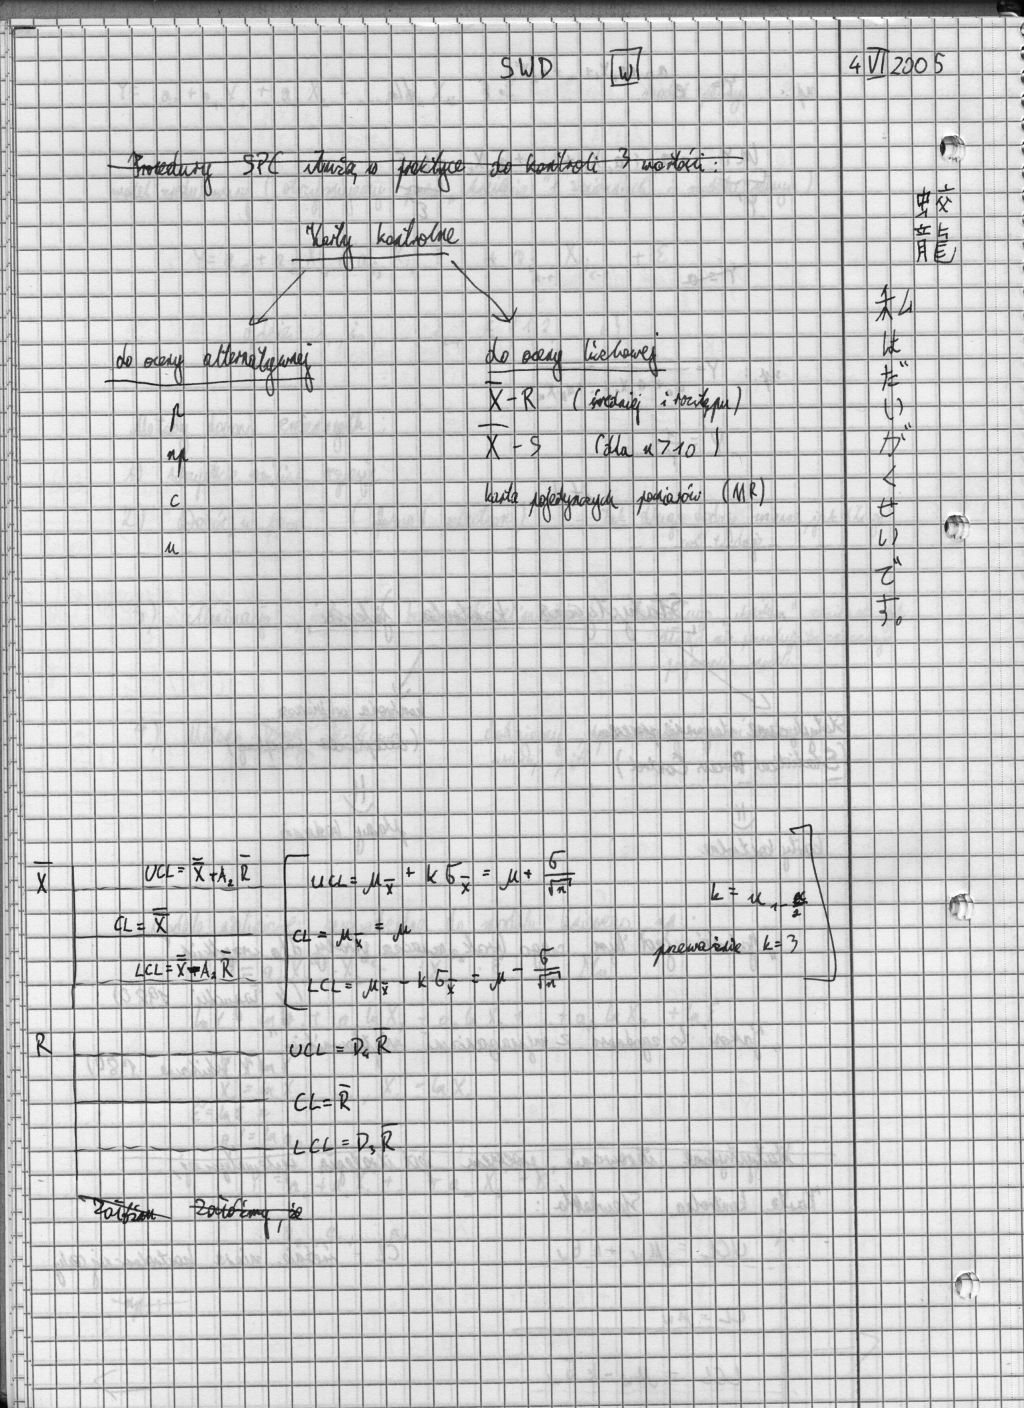 SWD W 4 VI 2005
Procedury SPC służą w praktyce do kontroli 3 wartości:
Karty kontrolne
do oceny alternatywnej
p
np
c
u
do oceny liczbowej
X̄ - R (średniej i rozstępu)
X̄ - S (dla n > 10)
karta pojedynczych pomiarów (MR)
X̄
UCL = X̿ + A₂ R̄
CL = X̿
LCL = X̿ - A₂ R̄
UCL = μx̄ + k σx̄ = μ + σ/√n
CL = μx̄ = μ
LCL = μx̄ - k σx̄ = μ - σ/√n
k = u 1-α/2
przeważnie k = 3
R
UCL = D₄ R̄
CL = R̄
LCL = D₃ R̄
Załóżmy, że
私はだいがくせいです。